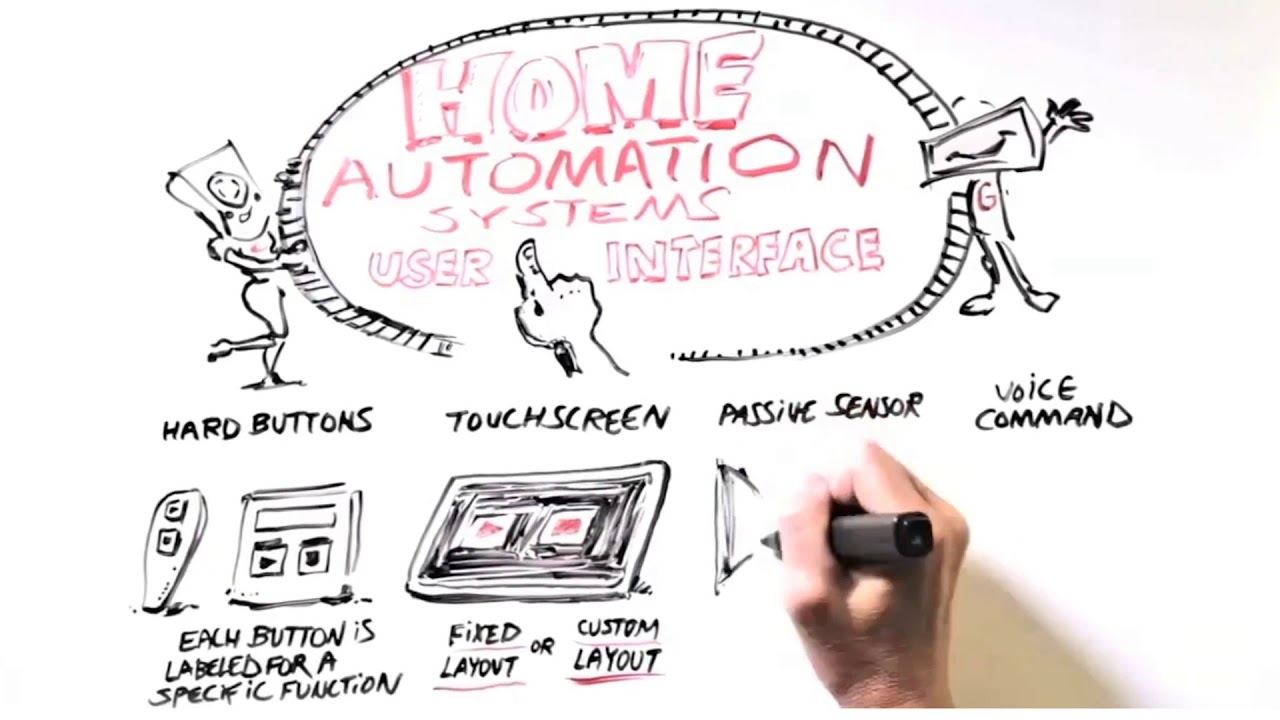 HOME
AUTOMATION
SYSTEMS
USER INTERFACE
G
HARD BUTTONS
TOUCHSCREEN
PASSIVE SENSOR
VOICE
COMMAND
EACH BUTTON IS
LABELED FOR A
SPECIFIC FUNCTION
FIXED
LAYOUT
OR
CUSTOM
LAYOUT